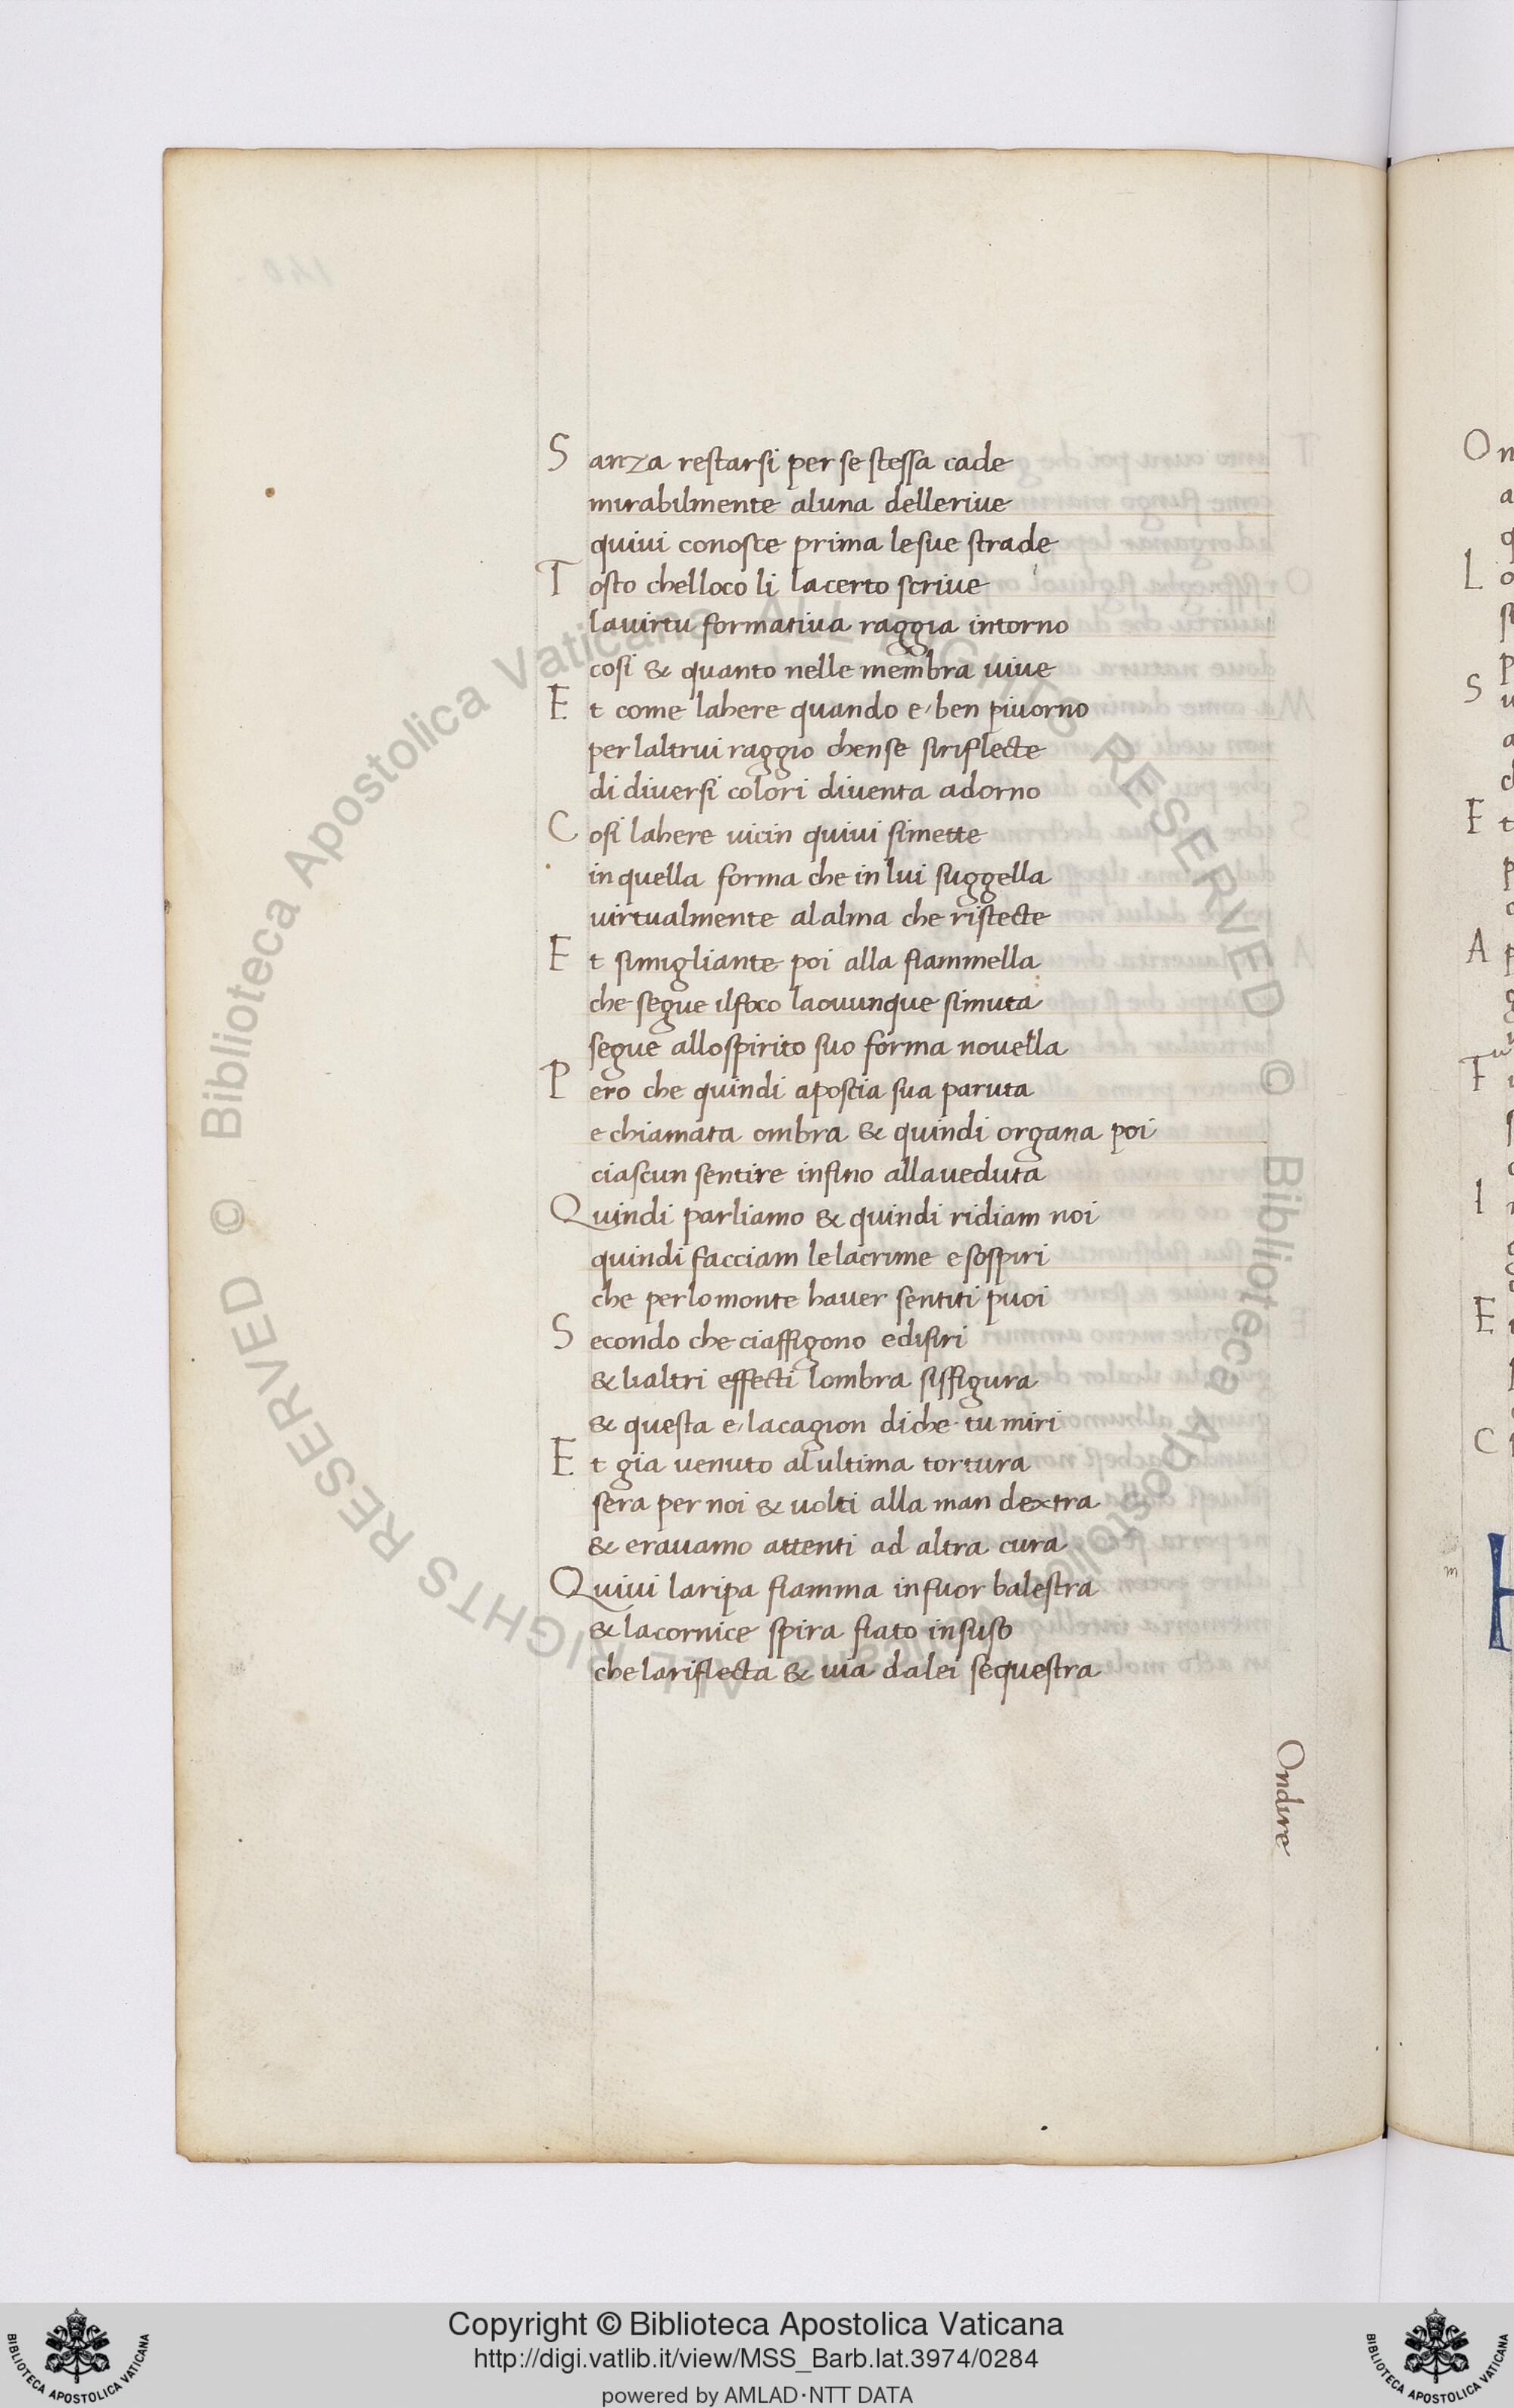 Sanza restarsi per se stessa cade
mirabilmente aluna dellerive
quiui conosce prima lesue strade
Tosto chelloco li lacerto scriue
lauirtu formatiua raggia intorno
cosi & quanto nelle membra uiue
Et come lahere quando e, ben piuorno
per laltrui raggio chense siriflecte
di diuersi colori diuenta adorno
Cosi lahere uicin quiui simette
in quella forma che in lui suggella
uirtualmente alalma che ristecte
Et simigliante poi alla fiammella
che segue ilfoco laouunque simuta
segue allospirito suo forma nouella
Pero che quindi aposcia sua paruta
e chiamata ombra & quindi organa poi
ciascun sentire infino allaueduta
Quindi parliamo & quindi ridiam noi
quindi facciam lelacrime e sospiri
che perlomonte hauer sentiti puoi
Secondo che ciaffigono edisiri
& lialtri effecti lombra siffigura
& questa e, lacagion diche tu miri
Et gia uenuto alultima tortura
sera per noi & uolti alla man dextra
& erauamo attenti ad altra cura
Quiui laripa fiamma infuor balestra
& lacornice spira fiato insuso
che lariflecta & uia dalei sequestra
Ondire
Copyright © Biblioteca Apostolica Vaticana
http://digi.vatlib.it/view/MSS_Barb.lat.3974/0284
powered by AMLAD·NTT DATA